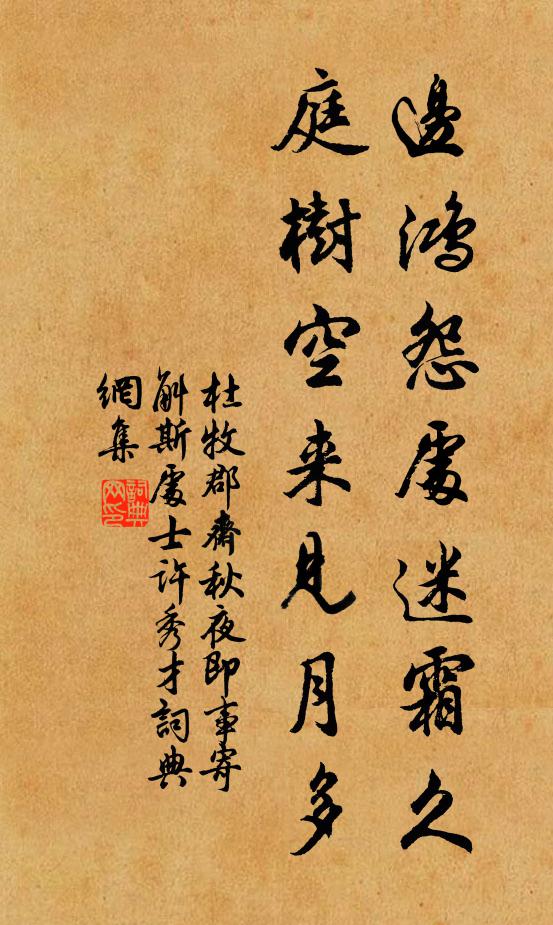 邊鴻怨處迷霜久
庭樹空来見月多
杜牧郡齋秋夜即事寄
斛斯處士許秀才詞典
網集
詞典
网印